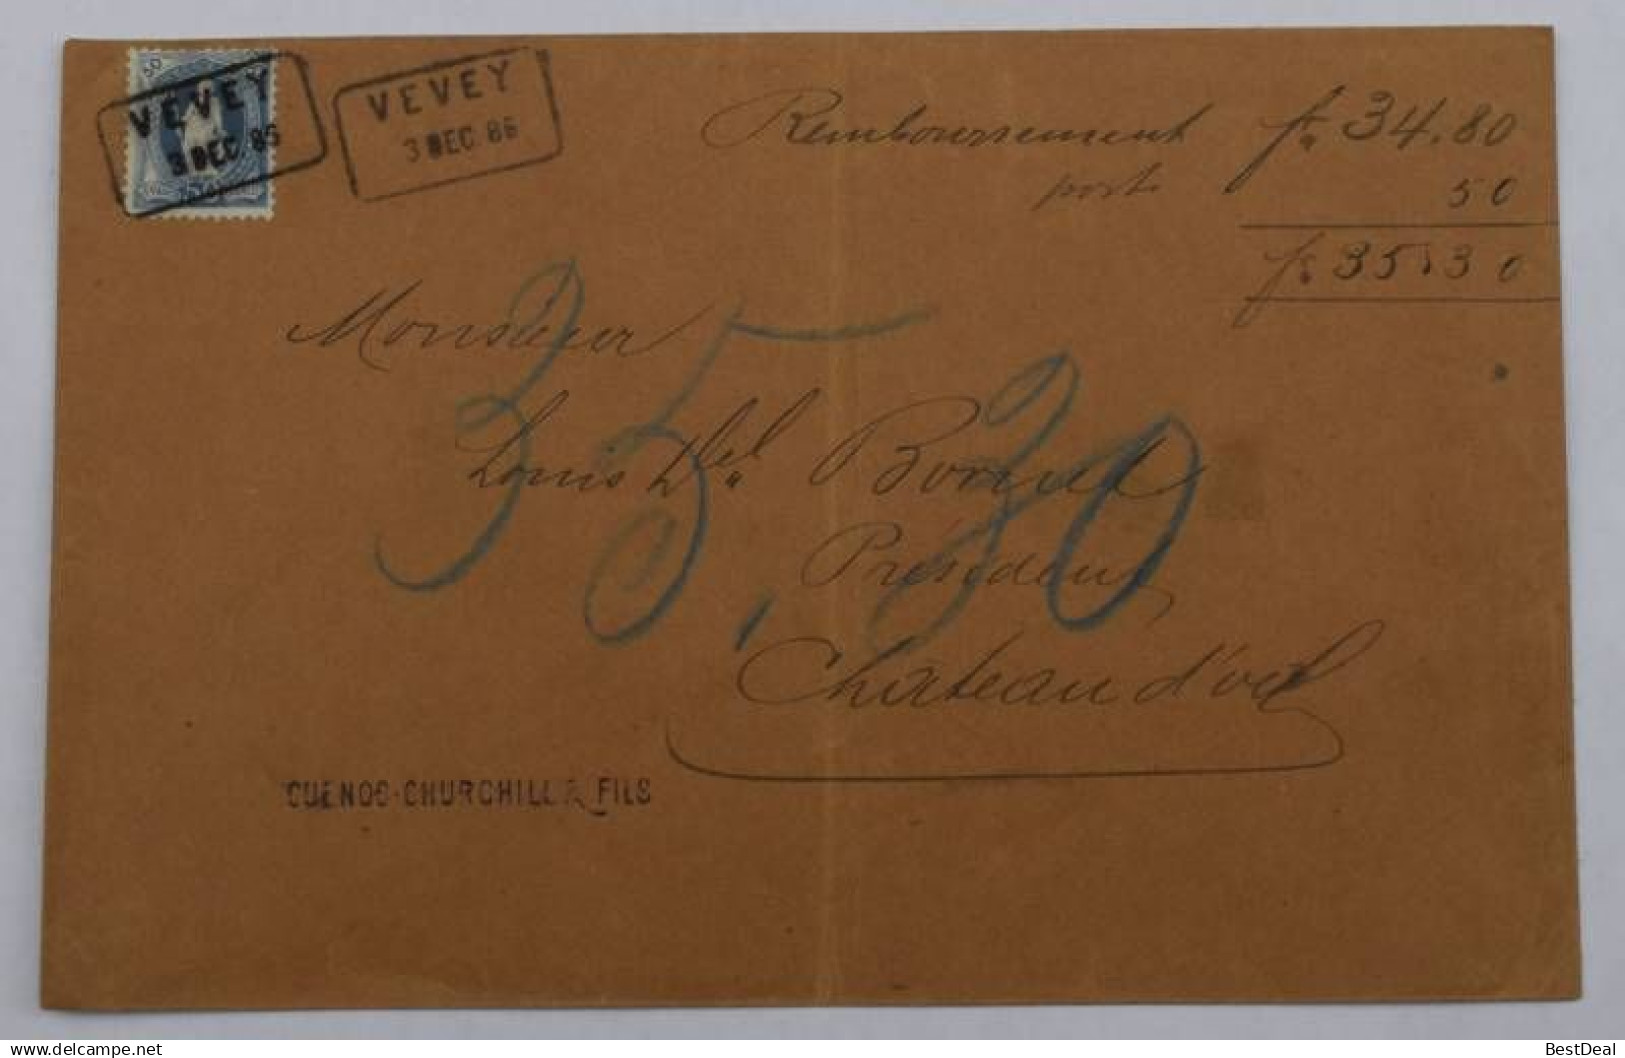 50
VEVEY
3 DEC 86
VEVEY
3 DEC 86
Remboursement fr. 34.80
port 50
fr. 35.30
35,30
Monsieur
Louis
Président
Chateau d'oex
CUENOD-CHURCHILL & FILS
www.delcampe.net
BestDeal